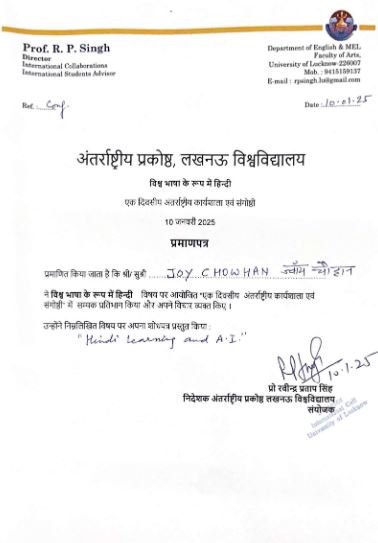 Prof. R. P. Singh
Director
International Collaborations
International Students Advisor
Department of English & MEL
Faculty of Arts,
University of Lucknow-226007
Mob. : 9415159137
E-mail : rpsingh.lu@gmail.com
Ref. : Conf.
Date : 10.01.25
अंतर्राष्ट्रीय प्रकोष्ठ, लखनऊ विश्वविद्यालय
विश्व भाषा के रूप में हिन्दी
एक दिवसीय अंतर्राष्ट्रीय कार्यशाला एवं संगोष्ठी
10 जनवरी 2025
प्रमाणपत्र
प्रमाणित किया जाता है कि श्री/ सुश्री JOY CHOWHAN ज्वॉय चौहान
ने विश्व भाषा के रूप में हिन्दी विषय पर आयोजित "एक दिवसीय अंतर्राष्ट्रीय कार्यशाला एवं
संगोष्ठी" में सम्यक प्रतिभाग किया और अपने विचार व्यक्त किए ।
उन्होंने निम्नलिखित विषय पर अपना शोधपत्र प्रस्तुत किया :
"Hindi Learning and A.I."
10-1-25
प्रो रवीन्द्र प्रताप सिंह
निदेशक अंतर्राष्ट्रीय प्रकोष्ठ लखनऊ विश्वविद्यालय
संयोजक
International Cell
University of Lucknow